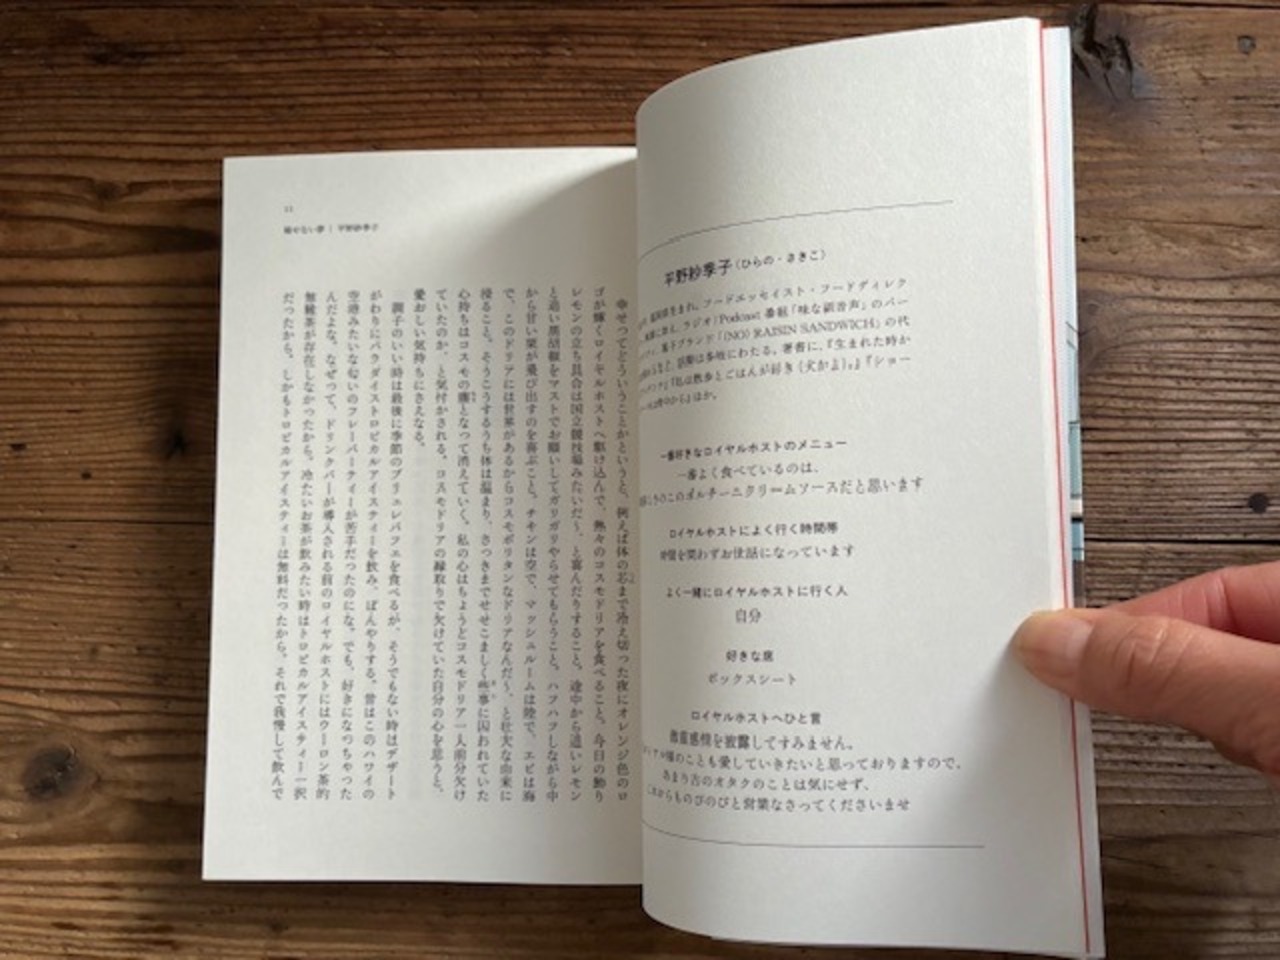 平野紗季子(ひらの・さきこ)
福岡県生まれ。フードエッセイスト・フードディレク
ラジオ/Podcast 番組「味な副音声」のパー
菓子ブランド「(NO) RAISIN SANDWICH」の代
など、活動は多岐にわたる。著書に、『生まれた時か
『私は散歩とごはんが好き(犬かよ)。』『ショー
ほか。
一番好きなロイヤルホストのメニュー
一番よく食べているのは、
きのこのポルチーニクリームソースだと思います
ロイヤルホストによく行く時間帯
時間を問わずお世話になっています
よく一緒にロイヤルホストに行く人
自分
好きな席
ボックスシート
ロイヤルホストへひと言
激重感情を披露してすみません。
のことも愛していきたいと思っておりますので、
あまり古のオタクのことは気にせず、
これからものびのびと営業なさってくださいませ
11
平野紗季子
幸せってどういうことかというと、例えば体の芯まで冷え切った夜にオレンジ色のロ
ゴが輝くロイヤルホストへ駆け込んで、熱々のコスモドリアを食べること。今日の飾り
レモンの立ち具合は国立競技場みたいだ〜、と喜んだりすること。途中から追いレモン
と追い黒胡椒をマストでお願いしてガリガリやらせてもらうこと。ハフハフしながら中
から甘い栗が飛び出すのを喜ぶこと。チキンは空で、マッシュルームは陸で、エビは海
で、このドリアには世界があるからコスモポリタンなドリアなんだ〜、と壮大な由来に
浸ること。そうこうするうち体は温まり、さっきまでせせこましく些事に囚われていた
心持ちはコスモの塵となって消えていく。私の心はちょうどコスモドリア一人前分欠け
ていたのか、と気付かされる。コスモドリアの縁取りで欠けていた自分の心を思うと、
愛おしい気持ちにさえなる。
調子のいい時は最後に季節のブリュレパフェを食べるが、そうでもない時はデザート
がわりにパラダイストロピカルアイスティーを飲み、ぼんやりする。昔はこのハワイの
空港みたいな匂いのフレーバーティーが苦手だったのにな。でも、好きになっちゃった
んだよな。なぜって、ドリンクバーが導入される前のロイヤルホストにはウーロン茶的
無糖茶が存在しなかったから。冷たいお茶が飲みたい時はトロピカルアイスティー一択
だったから。しかもトロピカルアイスティーは無料だったから。それで我慢して飲んで